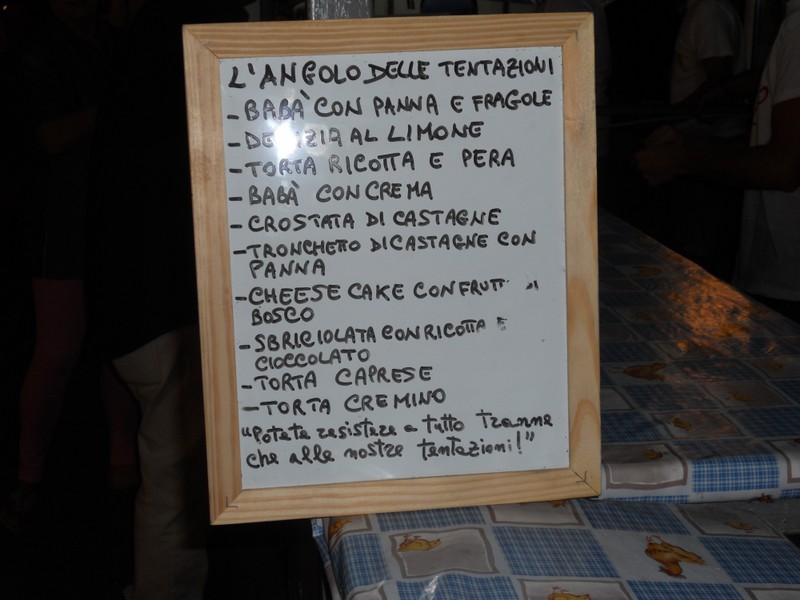 L'ANGOLO DELLE TENTAZIONI
- BABÀ CON PANNA E FRAGOLE
- DELIZIA AL LIMONE
- TORTA RICOTTA E PERA
- BABÀ CON CREMA
- CROSTATA DI CASTAGNE
- TRONCHETTO DI CASTAGNE CON
PANNA
- CHEESE CAKE CON FRUTTI DI
BOSCO
- SBRICIOLATA CON RICOTTA E
CIOCCOLATO
- TORTA CAPRESE
- TORTA CREMINO
"Potete resistere a tutto tranne
che alle nostre tentazioni!"